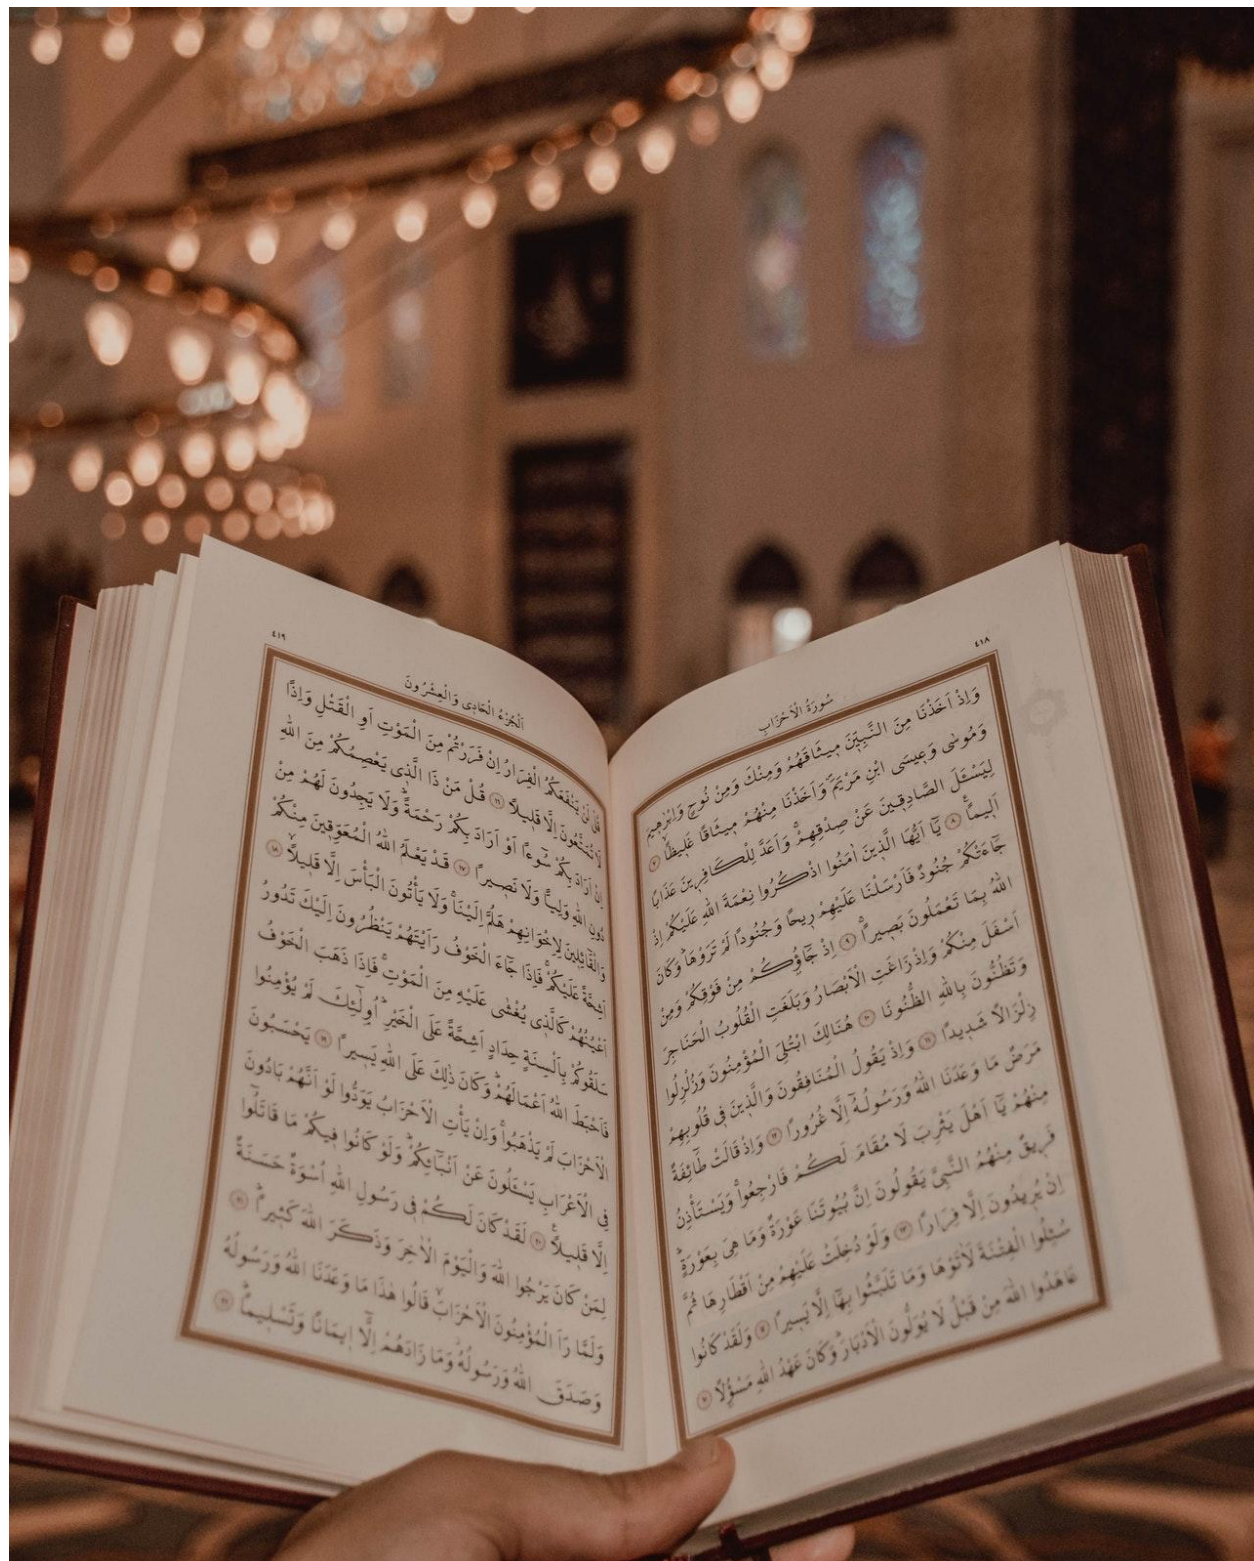 ٤١٨
سُورَةُ الْاَحْزَابِ
وَاِذْ اَخَذْنَا مِنَ النَّبِيّٖنَ مٖيثَاقَهُمْ وَمِنْكَ وَمِنْ نُوحٍ وَاِبْرٰهٖيمَ
وَمُوسٰى وَعٖيسَى ابْنِ مَرْيَمَ وَاَخَذْنَا مِنْهُمْ مٖيثَاقًا غَلٖيظًاۙ ﴿٧﴾
لِيَسْـَٔلَ الصَّادِقٖينَ عَنْ صِدْقِهِمْۚ وَاَعَدَّ لِلْكَافِرٖينَ عَذَابًا
اَلٖيمًا۟ ﴿٨﴾ يَٓا اَيُّهَا الَّذٖينَ اٰمَنُوا اذْكُرُوا نِعْمَةَ اللّٰهِ عَلَيْكُمْ اِذْ
جَٓاءَتْكُمْ جُنُودٌ فَاَرْسَلْنَا عَلَيْهِمْ رٖيحًا وَجُنُودًا لَمْ تَرَوْهَاۜ وَكَانَ
اللّٰهُ بِمَا تَعْمَلُونَ بَصٖيرًاۚ ﴿٩﴾ اِذْ جَٓاؤُ۫كُمْ مِنْ فَوْقِكُمْ وَمِنْ
اَسْفَلَ مِنْكُمْ وَاِذْ زَاغَتِ الْاَبْصَارُ وَبَلَغَتِ الْقُلُوبُ الْحَنَاجِرَ
وَتَظُنُّونَ بِاللّٰهِ الظُّنُونَا ﴿١٠﴾ هُنَالِكَ ابْتُلِيَ الْمُؤْمِنُونَ وَزُلْزِلُوا
زِلْزَالًا شَدٖيدًا ﴿١١﴾ وَاِذْ يَقُولُ الْمُنَافِقُونَ وَالَّذٖينَ فٖي قُلُوبِهِمْ
مَرَضٌ مَا وَعَدَنَا اللّٰهُ وَرَسُولُهُٓ اِلَّا غُرُورًا ﴿١٢﴾ وَاِذْ قَالَتْ طَٓائِفَةٌ
مِنْهُمْ يَٓا اَهْلَ يَثْرِبَ لَا مُقَامَ لَكُمْ فَارْجِعُواۚ وَيَسْتَأْذِنُ
فَرٖيقٌ مِنْهُمُ النَّبِيَّ يَقُولُونَ اِنَّ بُيُوتَنَا عَوْرَةٌ وَمَا هِيَ بِعَوْرَةٍۚ
اِنْ يُرٖيدُونَ اِلَّا فِرَارًا ﴿١٣﴾ وَلَوْ دُخِلَتْ عَلَيْهِمْ مِنْ اَقْطَارِهَا ثُمَّ
سُئِلُوا الْفِتْنَةَ لَاٰتَوْهَا وَمَا تَلَبَّثُوا بِهَٓا اِلَّا يَسٖيرًا ﴿١٤﴾ وَلَقَدْ كَانُوا
عَاهَدُوا اللّٰهَ مِنْ قَبْلُ لَا يُوَلُّونَ الْاَدْبَارَۜ وَكَانَ عَهْدُ اللّٰهِ مَسْؤُ۫لًا ﴿١٥﴾
٤١٩
اَلْجُزْءُ الْحَادِي وَالْعِشْرُونَ
قُلْ لَنْ يَنْفَعَكُمُ الْفِرَارُ اِنْ فَرَرْتُمْ مِنَ الْمَوْتِ اَوِ الْقَتْلِ وَاِذًا
لَا تُمَتَّعُونَ اِلَّا قَلٖيلًا ﴿١٦﴾ قُلْ مَنْ ذَا الَّذٖي يَعْصِمُكُمْ مِنَ اللّٰهِ
اِنْ اَرَادَ بِكُمْ سُٓوءًا اَوْ اَرَادَ بِكُمْ رَحْمَةًۜ وَلَا يَجِدُونَ لَهُمْ مِنْ
دُونِ اللّٰهِ وَلِيًّا وَلَا نَصٖيرًا ﴿١٧﴾ قَدْ يَعْلَمُ اللّٰهُ الْمُعَوِّقٖينَ مِنْكُمْ
وَالْقَٓائِلٖينَ لِاِخْوَانِهِمْ هَلُمَّ اِلَيْنَاۚ وَلَا يَأْتُونَ الْبَأْسَ اِلَّا قَلٖيلًاۙ ﴿١٨﴾
اَشِحَّةً عَلَيْكُمْۚ فَاِذَا جَٓاءَ الْخَوْفُ رَاَيْتَهُمْ يَنْظُرُونَ اِلَيْكَ تَدُورُ
اَعْيُنُهُمْ كَالَّذٖي يُغْشٰى عَلَيْهِ مِنَ الْمَوْتِۚ فَاِذَا ذَهَبَ الْخَوْفُ
سَلَقُوكُمْ بِاَلْسِنَةٍ حِدَادٍ اَشِحَّةً عَلَى الْخَيْرِۜ اُو۬لٰٓئِكَ لَمْ يُؤْمِنُوا
فَاَحْبَطَ اللّٰهُ اَعْمَالَهُمْۜ وَكَانَ ذٰلِكَ عَلَى اللّٰهِ يَسٖيرًا ﴿١٩﴾ يَحْسَبُونَ
الْاَحْزَابَ لَمْ يَذْهَبُواۚ وَاِنْ يَأْتِ الْاَحْزَابُ يَوَدُّوا لَوْ اَنَّهُمْ بَادُونَ
فِي الْاَعْرَابِ يَسْـَٔلُونَ عَنْ اَنْبَٓائِكُمْۜ وَلَوْ كَانُوا فٖيكُمْ مَا قَاتَلُٓوا
اِلَّا قَلٖيلًا۟ ﴿٢٠﴾ لَقَدْ كَانَ لَكُمْ فٖي رَسُولِ اللّٰهِ اُسْوَةٌ حَسَنَةٌ
لِمَنْ كَانَ يَرْجُوا اللّٰهَ وَالْيَوْمَ الْاٰخِرَ وَذَكَرَ اللّٰهَ كَثٖيرًاۜ ﴿٢١﴾
وَلَمَّا رَاَ الْمُؤْمِنُونَ الْاَحْزَابَۙ قَالُوا هٰذَا مَا وَعَدَنَا اللّٰهُ وَرَسُولُهُ
وَصَدَقَ اللّٰهُ وَرَسُولُهُۘ وَمَا زَادَهُمْ اِلَّٓا اٖيمَانًا وَتَسْلٖيمًاۜ ﴿٢٢﴾